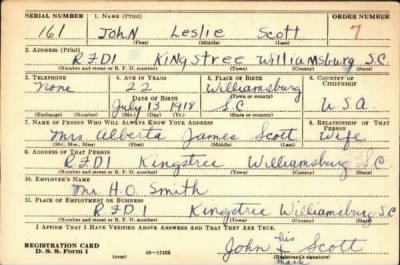 SERIAL NUMBER 1. NAME (Print) ORDER NUMBER
161 John Leslie Scott 7
(First) (Middle) (Last)
2. ADDRESS (Print)
RFD1 Kingstree Williamsburg S.C.
(Number and street or R. F. D. number) (Town) (County) (State)
3. TELEPHONE 4. AGE IN YEARS 5. PLACE OF BIRTH 6. COUNTRY OF CITIZENSHIP
None 22 Williamsburg
DATE OF BIRTH (Town or county)
July 13 1918 S C U S A
(Exchange) (Number) (Mo.) (Day) (Yr.) (State or country)
7. NAME OF PERSON WHO WILL ALWAYS KNOW YOUR ADDRESS 8. RELATIONSHIP OF THAT PERSON
Mrs. Alberta James Scott Wife
(Mr., Mrs., Miss) (First) (Middle) (Last)
9. ADDRESS OF THAT PERSON
RFD1 Kingstree Williamsburg S C
(Number and street or R. F. D. number) (Town) (County) (State)
10. EMPLOYER'S NAME
Mr. H.O. Smith
11. PLACE OF EMPLOYMENT OR BUSINESS
RFD1 Kingstree Williamsburg S.C.
(Number and street or R. F. D. number) (Town) (County) (State)
I AFFIRM THAT I HAVE VERIFIED ABOVE ANSWERS AND THAT THEY ARE TRUE.
REGISTRATION CARD
D. S. S. Form 1 (over) 16—17105
John his Scott
(Registrant's signature)
mark